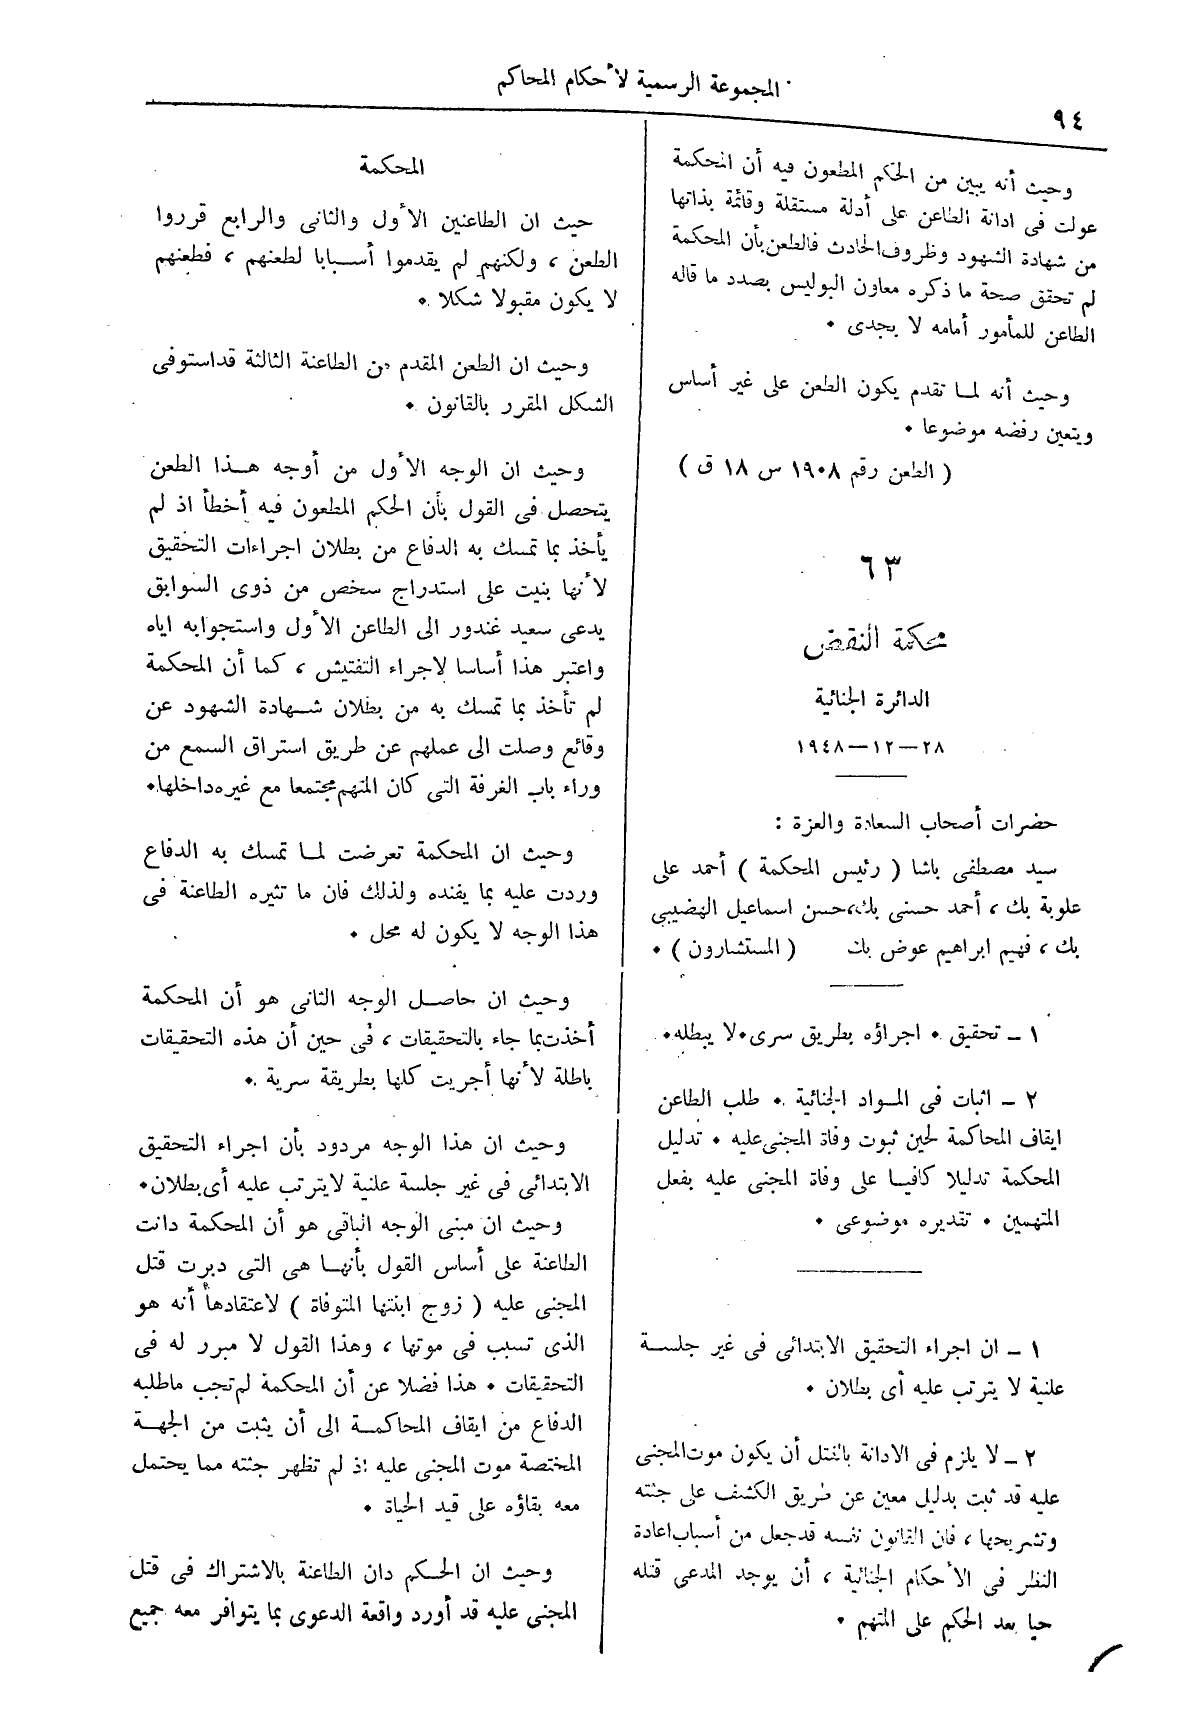 المجموعة الرسمية لأحكام المحاكم
٩٤
وحيث أنه يبين من الحكم المطعون فيه أن المحكمة
عولت فى ادانة الطاعن على أدلة مستقلة وقائمة بذاتها
من شهادة الشهود وظروف الحادث فالطعن بأن المحكمة
لم تحقق صحة ما ذكره معاون البوليس بصدد ما قاله
الطاعن للمأمور أمامه لا يجدى ٠
وحيث أنه لما تقدم يكون الطعن على غير أساس
ويتعين رفضه موضوعا ٠
( الطعن رقم ١٩٠٨ س ١٨ ق )
٦٣
محكمة النقض
الدائرة الجنائية
٢٨–١٢–١٩٤٨
حضرات أصحاب السعادة والعزة :
سيد مصطفى باشا ( رئيس المحكمة ) أحمد على
علوبة بك ، أحمد حسنى بك، حسن اسماعيل الهضيبى
بك ، فهيم ابراهيم عوض بك ( المستشارون ) ٠
١ – تحقيق ٠ اجراؤه بطريق سرى ٠ لا يبطله ٠
٢ – اثبات فى المواد الجنائية ٠ طلب الطاعن
ايقاف المحاكمة لحين ثبوت وفاة المجنى عليه ٠ تدليل
المحكمة تدليلا كافيا على وفاة المجنى عليه بفعل
المتهمين ٠ تقديره موضوعى ٠
١ – ان اجراء التحقيق الابتدائى فى غير جلسة
علنية لا يترتب عليه أى بطلان ٠
٢ – لا يلزم فى الادانة بالقتل أن يكون موت المجنى
عليه قد ثبت بدليل معين عن طريق الكشف على جثته
وتشريحها ، فان القانون نفسه قد جعل من أسباب اعادة
النظر فى الأحكام الجنائية ، أن يوجد المدعى قتله
حيا بعد الحكم على المتهم ٠
المحكمة
حيث ان الطاعنين الأول والثانى والرابع قرروا
الطعن ، ولكنهم لم يقدموا أسبابا لطعنهم ، فطعنهم
لا يكون مقبولا شكلا ٠
وحيث ان الطعن المقدم من الطاعنة الثالثة قد استوفى
الشكل المقرر بالقانون ٠
وحيث ان الوجه الأول من أوجه هذا الطعن
يتحصل فى القول بأن الحكم المطعون فيه أخطأ اذ لم
يأخذ بما تمسك به الدفاع من بطلان اجراءات التحقيق
لأنها بنيت على استدراج سخص من ذوى السوابق
يدعى سعيد غندور الى الطاعن الأول واستجوابه اياه
واعتبر هذا أساسا لاجراء التفتيش ، كما أن المحكمة
لم تأخذ بما تمسك به من بطلان شهادة الشهود عن
وقائع وصلت الى عملهم عن طريق استراق السمع من
وراء باب الغرفة التى كان المتهم مجتمعا مع غيره داخلها ٠
وحيث ان المحكمة تعرضت لما تمسك به الدفاع
وردت عليه بما يفنده ولذلك فان ما تثيره الطاعنة فى
هذا الوجه لا يكون له محل ٠
وحيث ان حاصل الوجه الثانى هو أن المحكمة
أخذت بما جاء بالتحقيقات ، فى حين أن هذه التحقيقات
باطلة لأنها أجريت كلها بطريقة سرية ٠
وحيث ان هذا الوجه مردود بأن اجراء التحقيق
الابتدائى فى غير جلسة علنية لا يترتب عليه أى بطلان ٠
وحيث ان مبنى الوجه الباقى هو أن المحكمة دانت
الطاعنة على أساس القول بأنها هى التى دبرت قتل
المجنى عليه ( زوج ابنتها المتوفاة ) لاعتقادها أنه هو
الذى تسبب فى موتها ، وهذا القول لا مبرر له فى
التحقيقات ٠ هذا فضلا عن أن المحكمة لم تجب ما طلبه
الدفاع من ايقاف المحاكمة الى أن يثبت من الجهة
المختصة موت المجنى عليه اذ لم تظهر جثته مما يحتمل
معه بقاؤه على قيد الحياة ٠
وحيث ان الحكم دان الطاعنة بالاشتراك فى قتل
المجنى عليه قد أورد واقعة الدعوى بما يتوافر معه جميع